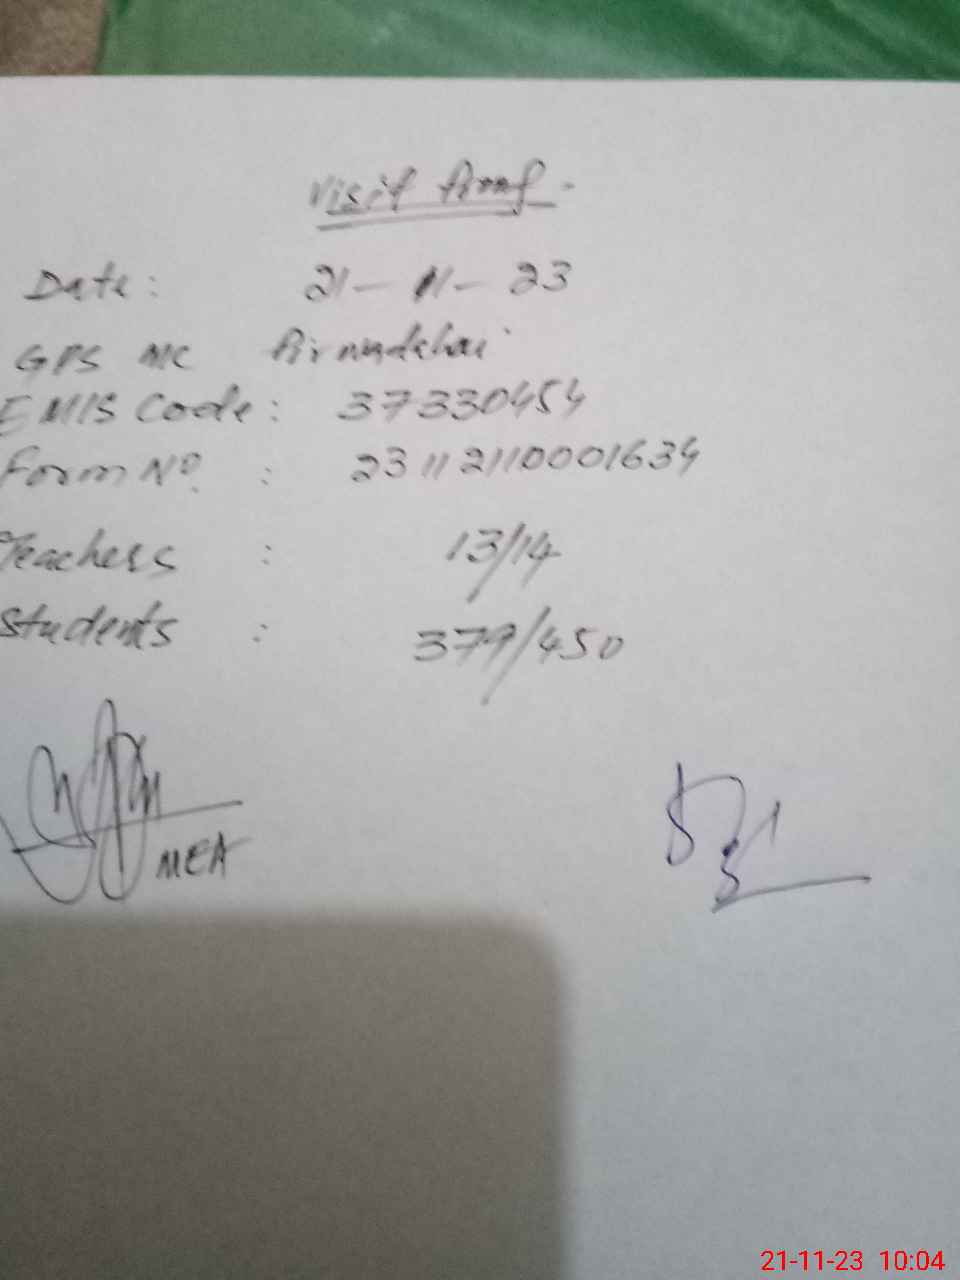 Visit Proof.
Date: 21-11-23
GPS MC
EMIS Code: 37330454
Form No. : 231121110001634
Teachers : 13/14
Students : 379/450
MEA
21-11-23 10:04